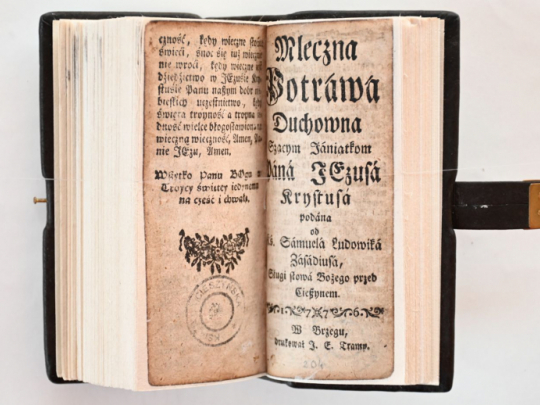 czność, kędy wieczne słońce
świeci, á noc się już wiecznie
nie wroci, kędy wieczne
dziedzictwo w JEzusie Kry-
stusie Pánu nászym
bieskich uczestnictwo,
święta troyność a troyna
dność wielce błogosławiona
wieczną wieczność, Amen,
nie JEzu, Amen.
Wszytko Pánu BOgu w
Troycy świętey jedynemu
ná cześć i chwałę.
Mleczna
Potráwá
Duchowna
Szácym Jániątkom
Páná JEzusá
Krystusá
podána
od
Sámuelá Ludowiká
Zásádiusá,
Sługi słowá Bożego przed
Cieszynem.
1776
W Brzegu,
drukował J. E. Tramp.
204